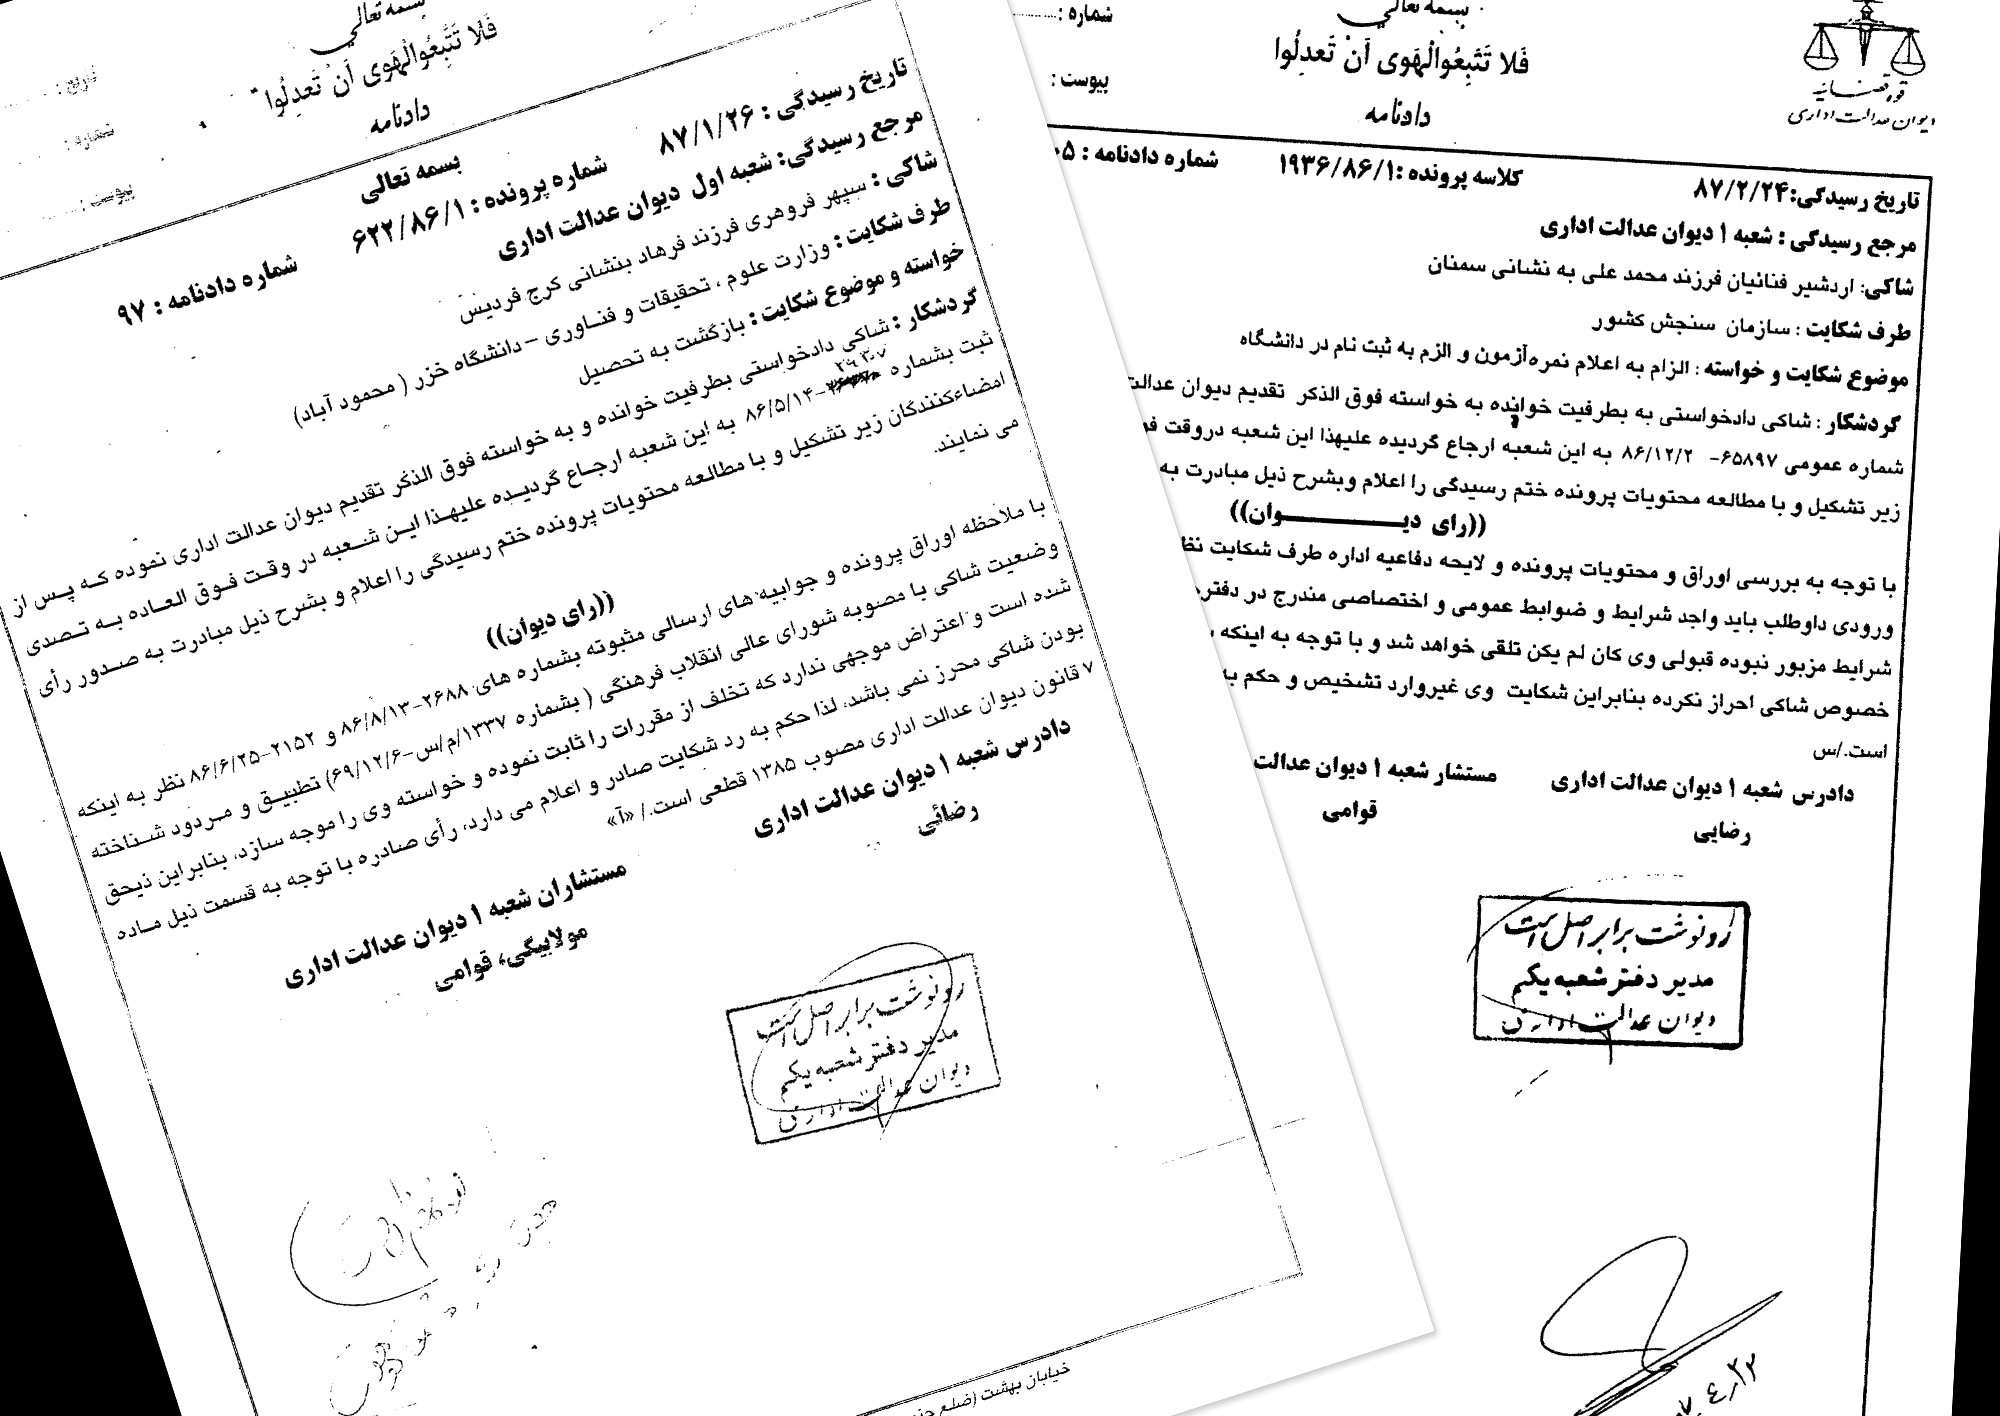 بسمه تعالی
فَلا تَتَّبِعُوالْهَوی اَنْ تَعدِلُوا
دادنامه
تاریخ :
شماره :
پیوست :
بسمه تعالی
تاریخ رسیدگی : ۸۷/۱/۲۶ شماره پرونده : ۶۲۲/۸۶/۱ شماره دادنامه : ۹۷
مرجع رسیدگی: شعبه اول دیوان عدالت اداری
شاکی : سپهر فروهری فرزند فرهاد بنشانی کرج فردیس
طرف شکایت : وزارت علوم ، تحقیقات و فناوری – دانشگاه خزر ( محمود آباد)
خواسته و موضوع شکایت : بازگشت به تحصیل
گردشکار : شاکی دادخواستی بطرفیت خوانده و به خواسته فوق الذکر تقدیم دیوان عدالت اداری نموده که پس از
ثبت بشماره -۸۶/۵/۱۴ به این شعبه ارجاع گردیده علیهذا این شعبه در وقت فوق العاده به تصدی
امضاءکنندگان زیر تشکیل و با مطالعه محتویات پرونده ختم رسیدگی را اعلام و بشرح ذیل مبادرت به صدور رأی
می نمایند.
((رای دیوان))
با ملاحظه اوراق پرونده و جوابیه های ارسالی مثبوته بشماره های ۲۶۸۸-۸۶/۸/۱۳ و ۲۱۵۲-۸۶/۶/۲۵ نظر به اینکه
وضعیت شاکی با مصوبه شورای عالی انقلاب فرهنگی ( بشماره ۱۳۳۷/م/س-۶۹/۱۲/۶) تطبیق و مردود شناخته
شده است و اعتراض موجهی ندارد که تخلف از مقررات را ثابت نموده و خواسته وی را موجه سازد، بنابراین ذیحق
بودن شاکی محرز نمی باشد، لذا حکم به رد شکایت صادر و اعلام می دارد، رأی صادره با توجه به قسمت ذیل ماده
۷ قانون دیوان عدالت اداری مصوب ۱۳۸۵ قطعی است./ «آ»
دادرس شعبه ۱ دیوان عدالت اداری
رضائی
مستشاران شعبه ۱ دیوان عدالت اداری
مولابیگی، قوامی
رونوشت برابر اصل است
مدیر دفتر شعبه یکم
دیوان عدالت اداری
خیابان بهشت (ضلع
بسمه تعالی
فَلا تَتَّبِعُوالْهَوی اَنْ تَعدِلُوا
دادنامه
شماره :
پیوست :
قوه قضائیه
دیوان عدالت اداری
تاریخ رسیدگی:۸۷/۲/۲۴ کلاسه پرونده :۱۹۳۶/۸۶/۱ شماره دادنامه : ۰۵
مرجع رسیدگی : شعبه ۱ دیوان عدالت اداری
شاکی: اردشیر فنائیان فرزند محمد علی به نشانی سمنان
طرف شکایت : سازمان سنجش کشور
موضوع شکایت و خواسته : الزام به اعلام نمره آزمون و الزم به ثبت نام در دانشگاه
گردشکار : شاکی دادخواستی به بطرفیت خوانده به خواسته فوق الذکر تقدیم دیوان عدالت
شماره عمومی ۶۵۸۹۷- ۸۶/۱۲/۲ به این شعبه ارجاع گردیده علیهذا این شعبه دروقت
زیر تشکیل و با مطالعه محتویات پرونده ختم رسیدگی را اعلام وبشرح ذیل مبادرت به
((رای دیـــــــــوان))
با توجه به بررسی اوراق و محتویات پرونده و لایحه دفاعیه اداره طرف شکایت
ورودی داوطلب باید واجد شرایط و ضوابط عمومی و اختصاصی مندرج در
شرایط مزبور نبوده قبولی وی کان لم یکن تلقی خواهد شد و با توجه به اینکه
خصوص شاکی احراز نکرده بنابراین شکایت وی غیروارد تشخیص و حکم به
است./س
دادرس شعبه ۱ دیوان عدالت اداری مستشار شعبه ۱ دیوان عدالت
رضایی قوامی
رونوشت برابر اصل است
مدیر دفتر شعبه یکم
دیوان عدالت اداری